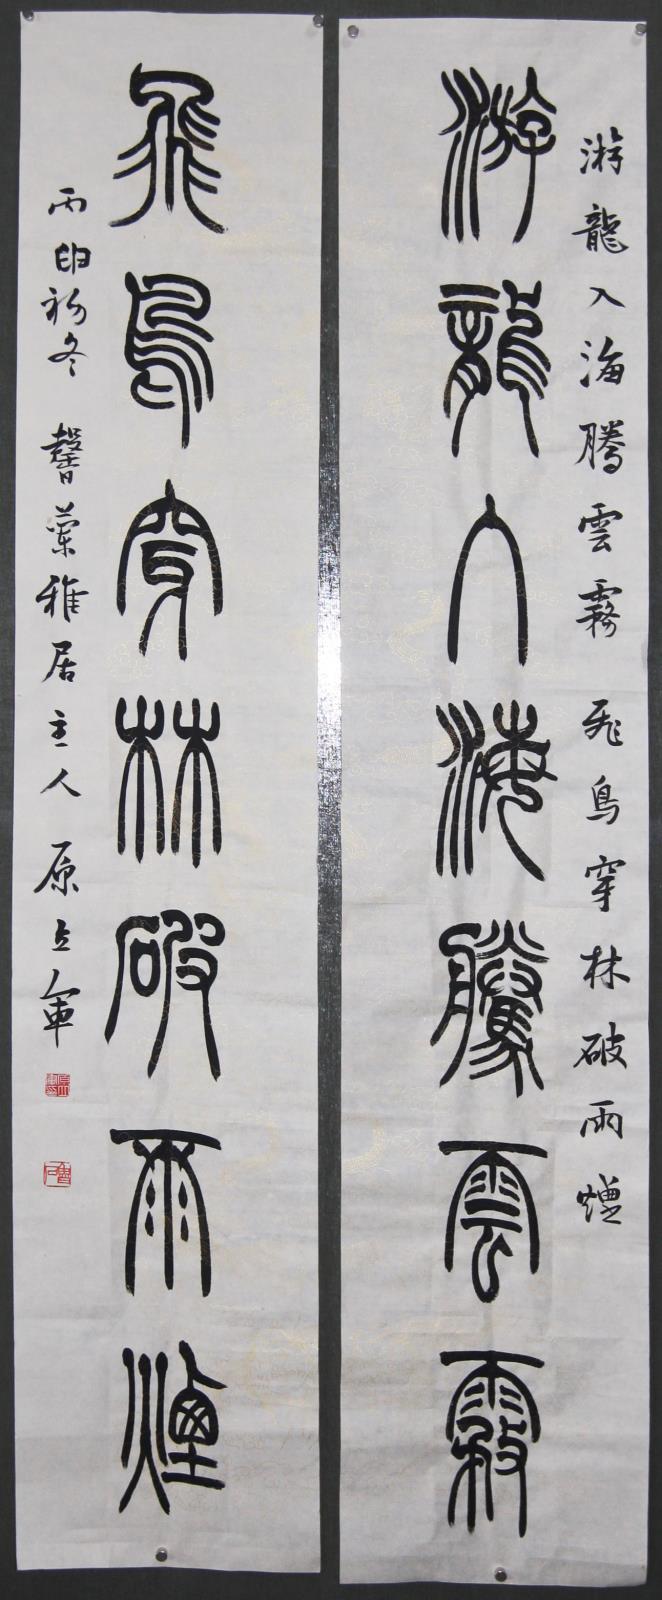 游龍入海騰雲霧 飛鳥穿林破雨煙
游龍入海騰雲霧
飛鳥穿林破雨煙
丙申初冬 馨蘭雅居主人 原立軍